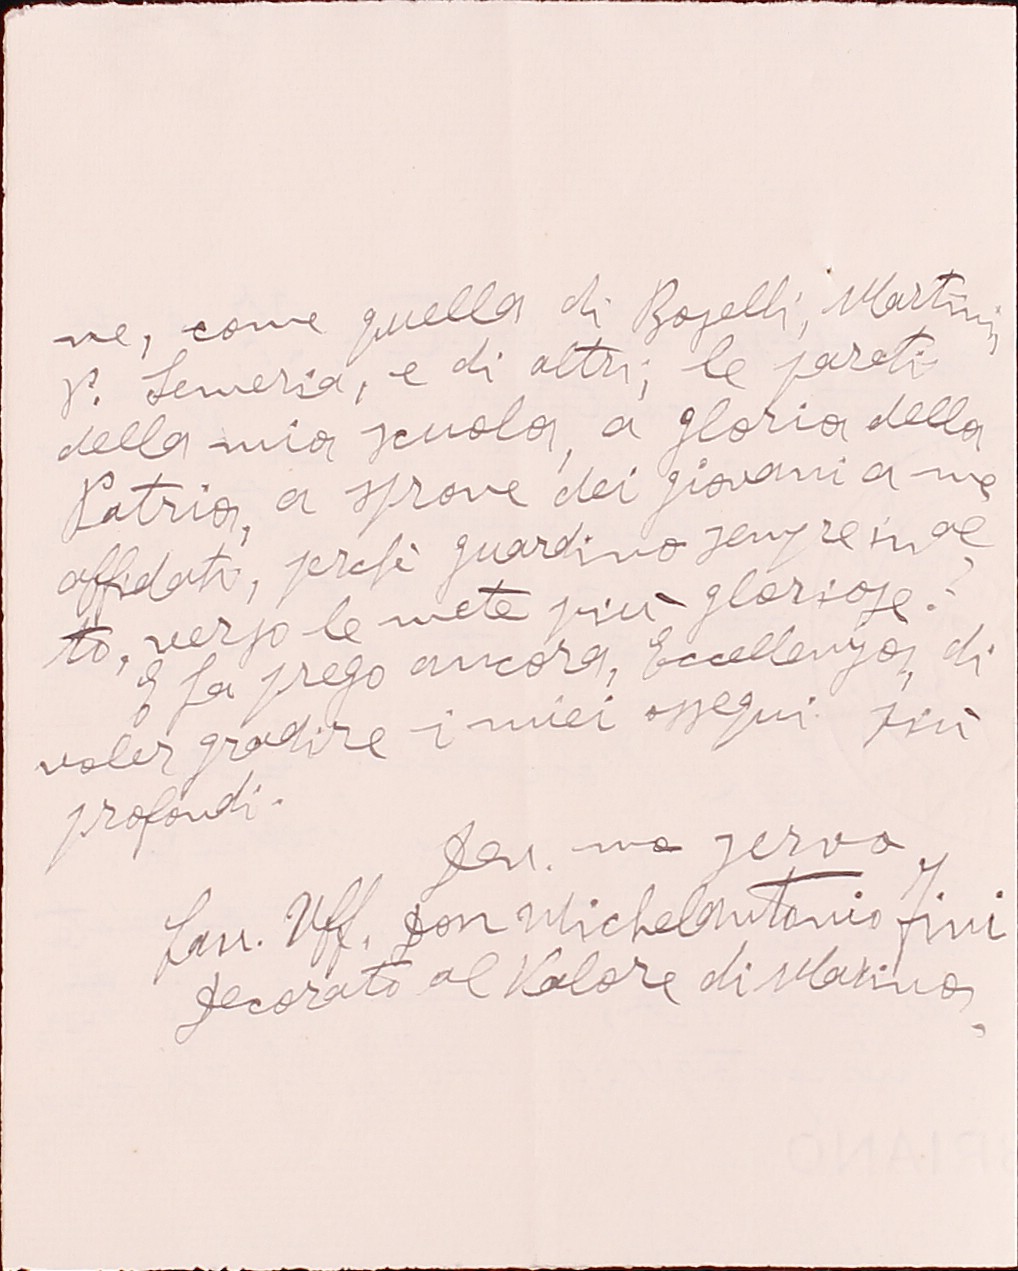 ne, come quella di Boselli, Martini,
P. Semeria, e di altri, le pareti
della mia scuola, a gloria della
Patria, a sprone dei giovani a me
affidati, perchè guardino sempre in al
to, verso le mete più gloriose?
E La prego ancora, Eccellenza, di
voler gradire i miei ossequi più
profondi.
Dev. mo servo
Cav. Uff. Don Michelantonio Fini
Decorato al Valore di Marina,